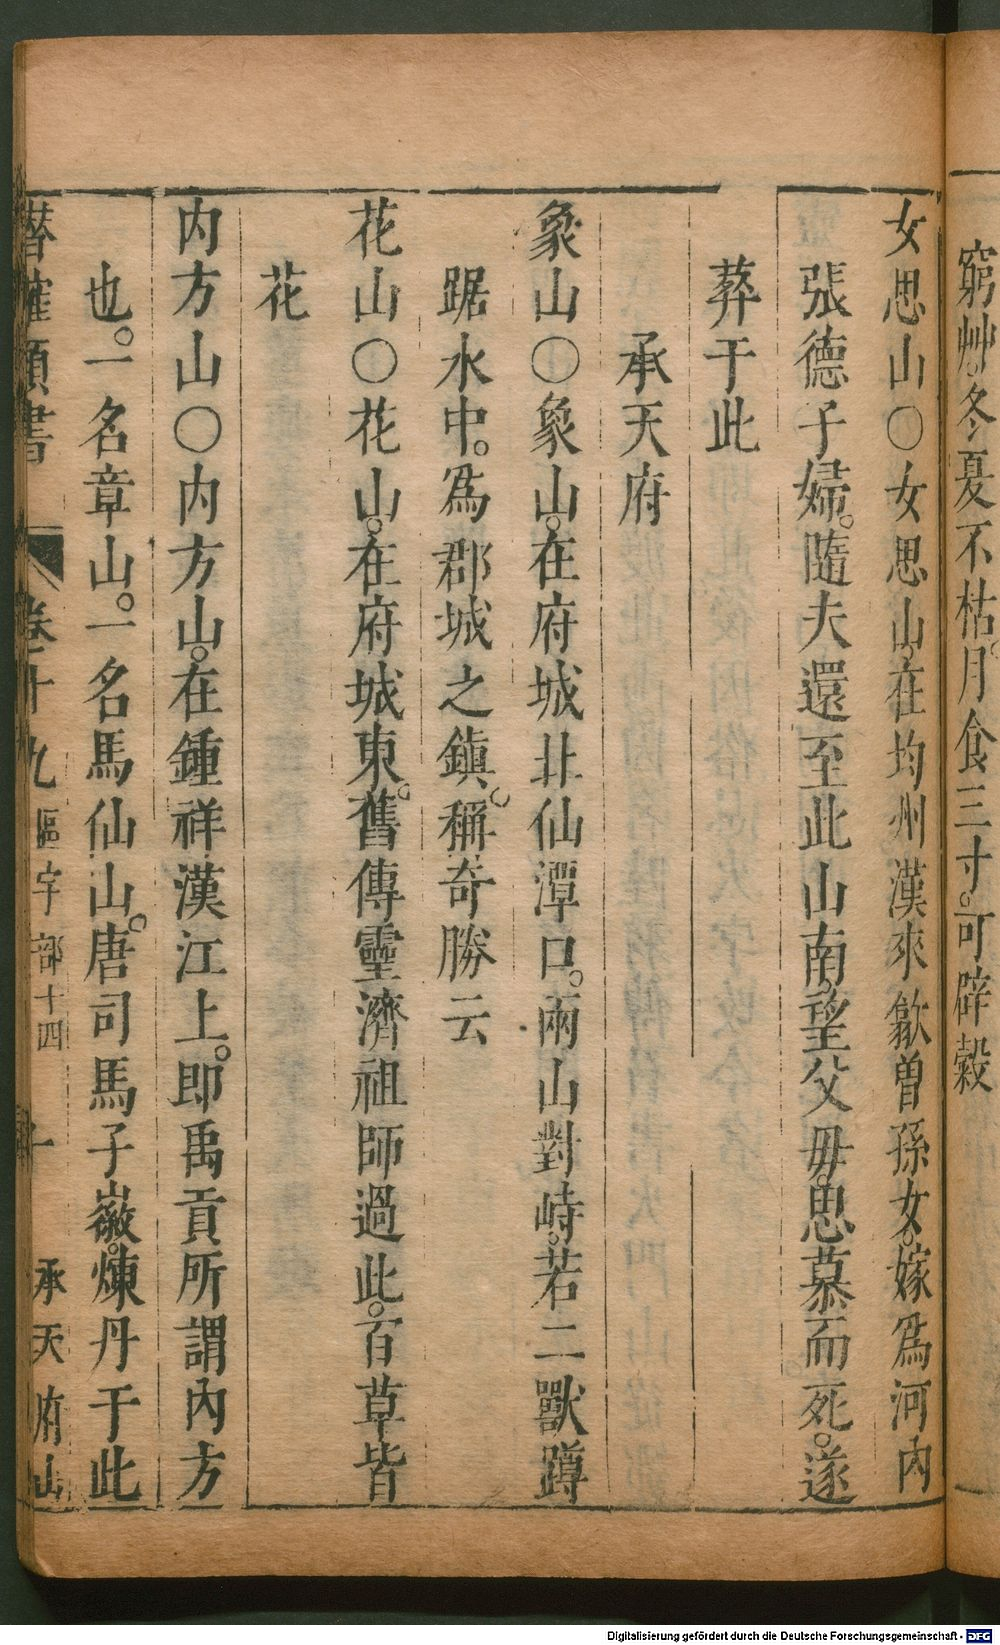 窮艸冬夏不枯。月食三寸。可辟穀
女思山○女思山。在均州漢來歙曽孫女。嫁爲河内
張德子婦。隨夫還至此山南。望父毋。思慕而死。遂
葬于此
承天府
象山○象山。在府城北仙潭口。兩山對峙。若二獸蹲
踞水中。爲郡城之鎮。稱奇勝云
花山○花山。在府城東。舊傳靈濟祖師過此。百草皆
花
内方山○内方山。在鍾祥漢江上。即禹貢所謂内方
也。一名章山。一名馬仙山。唐司馬子㣲。煉丹于此
潜確類書 卷十九 區宇部十四 十 承天府山
Digitalisierung gefördert durch die Deutsche Forschungsgemeinschaft - DFG